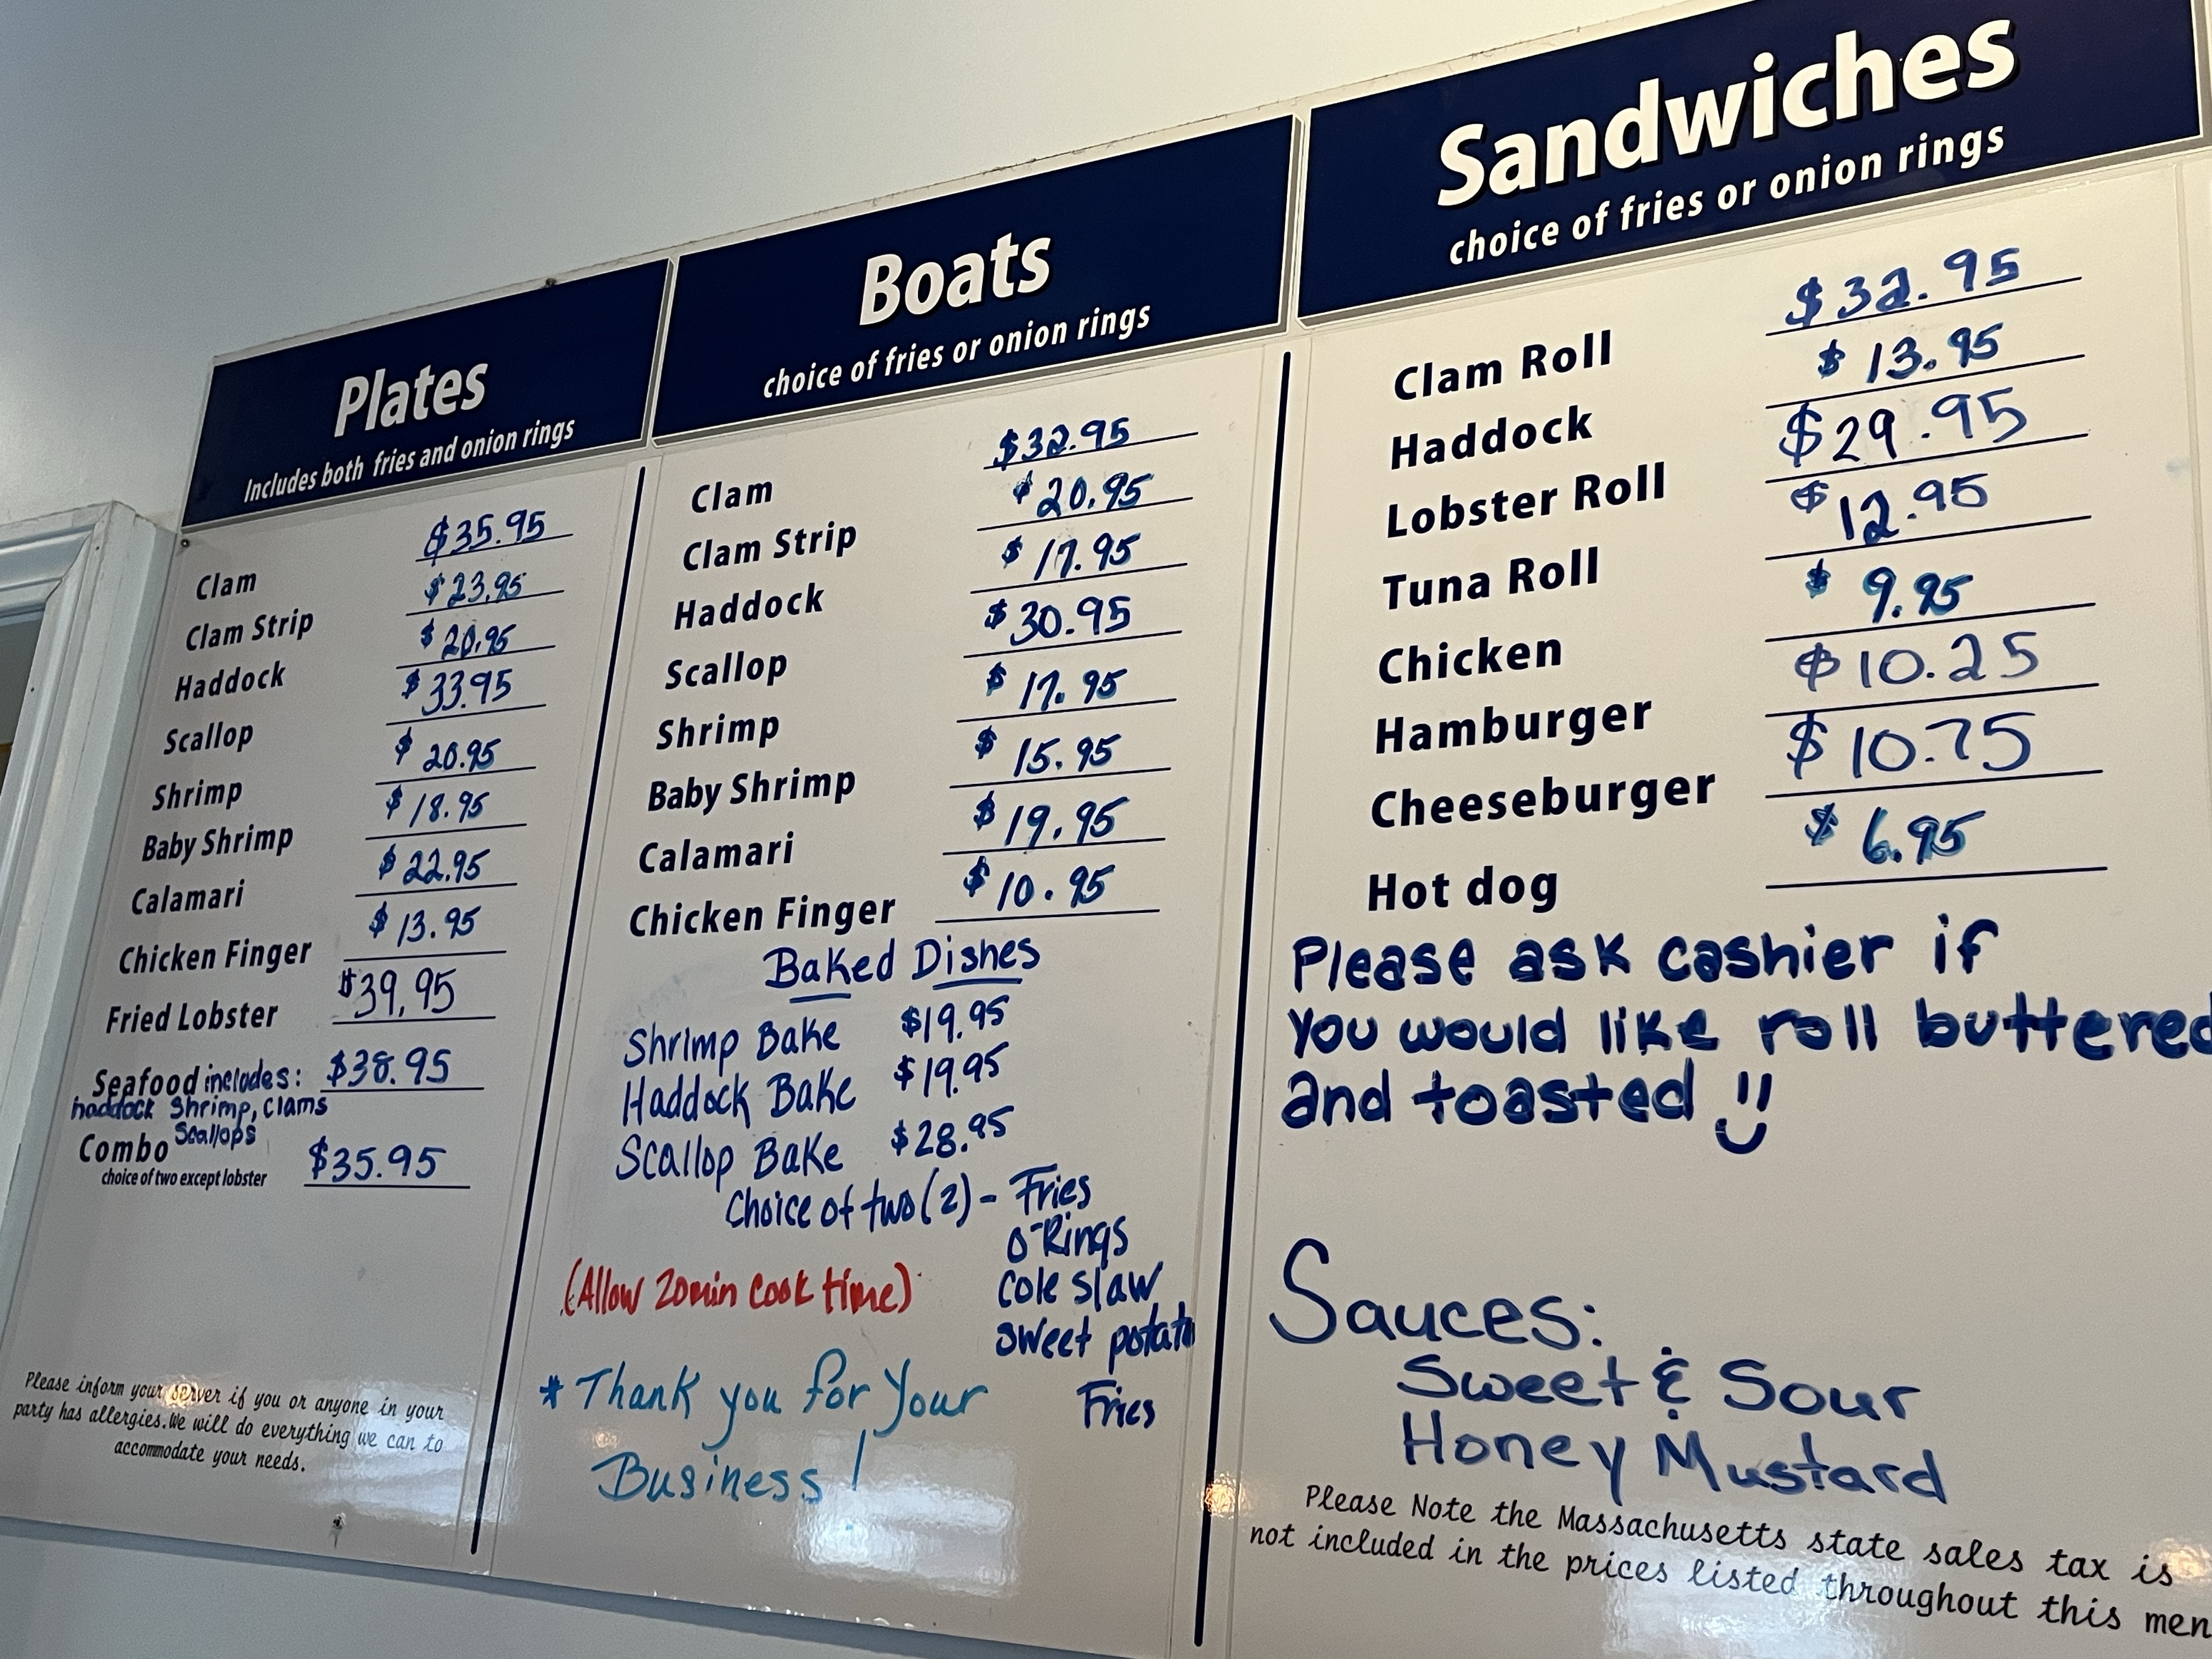 Plates
Includes both fries and onion rings
Clam $35.95
Clam Strip $23.95
Haddock $20.95
Scallop $33.95
Shrimp $20.95
Baby Shrimp $18.95
Calamari $22.95
Chicken Finger $13.95
Fried Lobster $39.95
Seafood includes: $38.95
haddock shrimp, clams
scallops
Combo $35.95
choice of two except lobster
Please inform your server if you or anyone in your
party has allergies.We will do everything we can to
accommodate your needs.
Boats
choice of fries or onion rings
Clam $32.95
Clam Strip $20.95
Haddock $17.95
Scallop $30.95
Shrimp $17.95
Baby Shrimp $15.95
Calamari $19.95
Chicken Finger $10.95
Baked Dishes
Shrimp Bake $19.95
Haddock Bake $19.95
Scallop Bake $28.95
Choice of two (2) - Fries
O-Rings
Cole slaw
sweet potato
Fries
(Allow 20min cook time)
* Thank you for your
Business!
Sandwiches
choice of fries or onion rings
Clam Roll $32.95
Haddock $13.95
Lobster Roll $29.95
Tuna Roll $12.95
Chicken $9.95
Hamburger $10.25
Cheeseburger $10.75
Hot dog $6.95
Please ask cashier if
you would like roll buttered
and toasted
Sauces:
Sweet & Sour
Honey Mustard
Please Note the Massachusetts state sales tax is
not included in the prices listed throughout this men